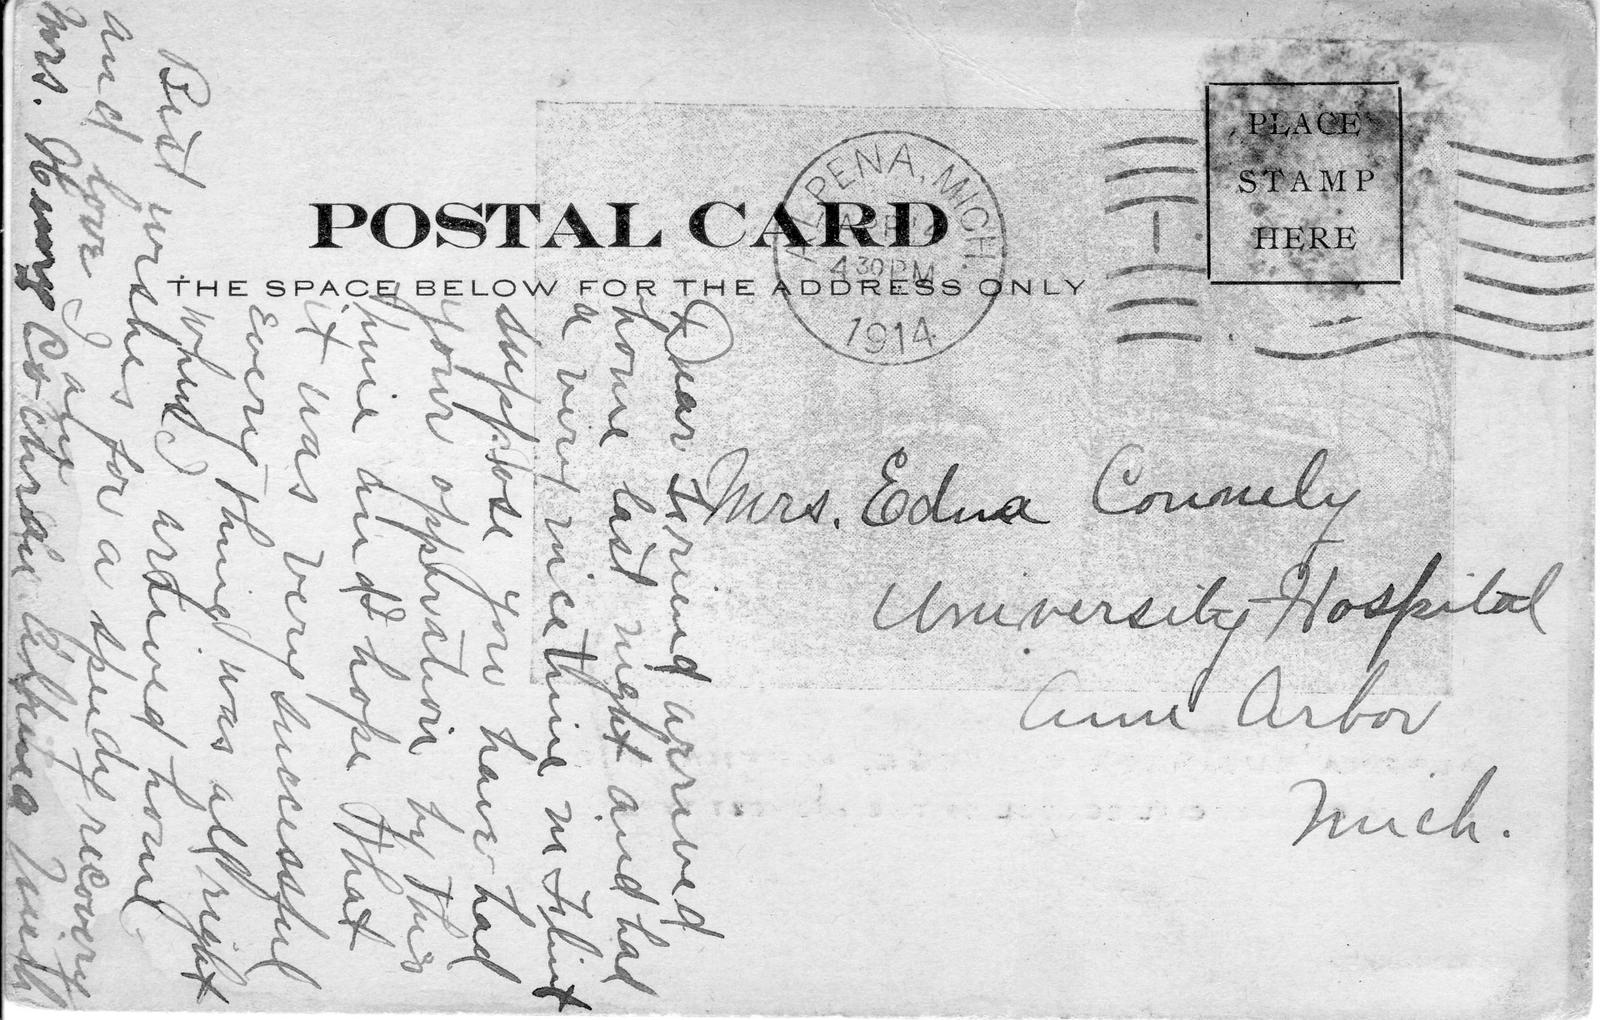 POSTAL CARD
THE SPACE BELOW FOR THE ADDRESS ONLY
ALPENA, MICH.
4 30 PM
1914
PLACE
STAMP
HERE
Mrs. Edna Connely
University Hospital
Ann Arbor
Mich.
Dear Friend arrived
home last night and had
a very nice time in Flint
suppose you have had
your opperation by this
time and I hope that
it was very successful
every thing was all right
when I arrived home
Best wishes for a speedy recovery
and love I am
Mrs. Henry Cochran